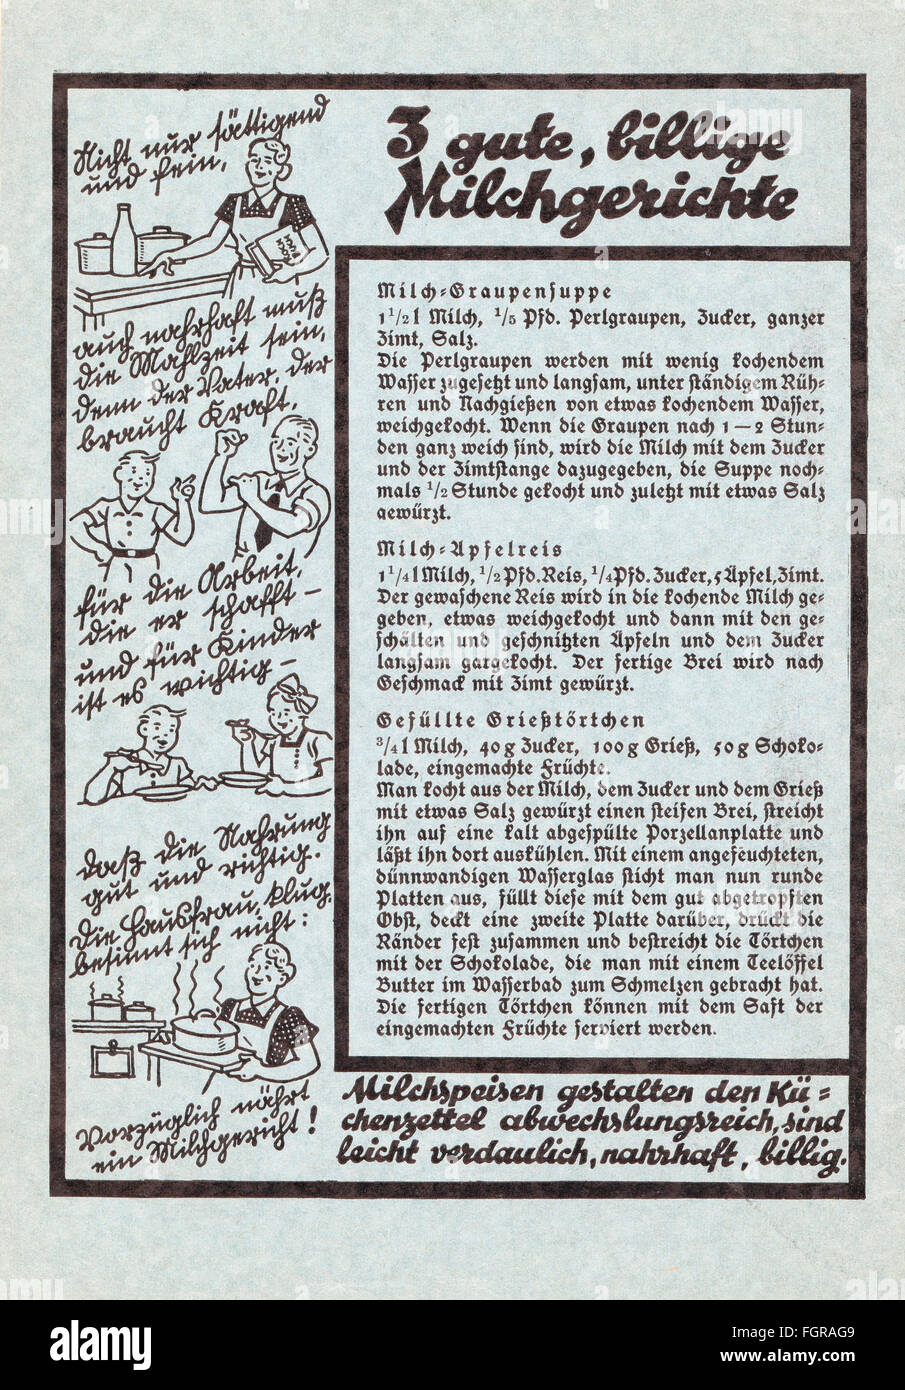 3 gute, billige
Milchgerichte
Nicht nur sättigend
und fein,
auch nahrhaft muß
die Mahlzeit sein,
denn der Vater, der
braucht Kraft,
für die Arbeit,
die er schafft –
und für Kinder
ist es wichtig –
daß die Nahrung
gut und richtig.
Die Hausfrau, klug,
besinnt sich nicht:
Vorzüglich nährt
ein Milchgericht!
Milch-Graupensuppe
1 1/2 l Milch, 1/5 Pfd. Perlgraupen, Zucker, ganzer
Zimt, Salz.
Die Perlgraupen werden mit wenig kochendem
Wasser zugesetzt und langsam, unter ständigem Rüh-
ren und Nachgießen von etwas kochendem Wasser,
weichgekocht. Wenn die Graupen nach 1 – 2 Stun-
den ganz weich sind, wird die Milch mit dem Zucker
und der Zimtstange dazugegeben, die Suppe noch-
mals 1/2 Stunde gekocht und zuletzt mit etwas Salz
gewürzt.
Milch-Apfelreis
1 1/4 l Milch, 1/2 Pfd. Reis, 1/4 Pfd. Zucker, 5 Äpfel, Zimt.
Der gewaschene Reis wird in die kochende Milch ge-
geben, etwas weichgekocht und dann mit den ge-
schälten und geschnitzten Äpfeln und dem Zucker
langsam gargekocht. Der fertige Brei wird nach
Geschmack mit Zimt gewürzt.
Gefüllte Grießtörtchen
3/4 l Milch, 40 g Zucker, 100 g Grieß, 50 g Schoko-
lade, eingemachte Früchte.
Man kocht aus der Milch, dem Zucker und dem Grieß
mit etwas Salz gewürzt einen steifen Brei, streicht
ihn auf eine kalt abgespülte Porzellanplatte und
läßt ihn dort auskühlen. Mit einem angefeuchteten,
dünnwandigen Wasserglas sticht man nun runde
Platten aus, füllt diese mit dem gut abgetropften
Obst, deckt eine zweite Platte darüber, drückt die
Ränder fest zusammen und bestreicht die Törtchen
mit der Schokolade, die man mit einem Teelöffel
Butter im Wasserbad zum Schmelzen gebracht hat.
Die fertigen Törtchen können mit dem Saft der
eingemachten Früchte serviert werden.
Milchspeisen gestalten den Kü-
chenzettel abwechslungsreich, sind
leicht verdaulich, nahrhaft, billig.
alamy stock photo
FGRAG9
www.alamy.com